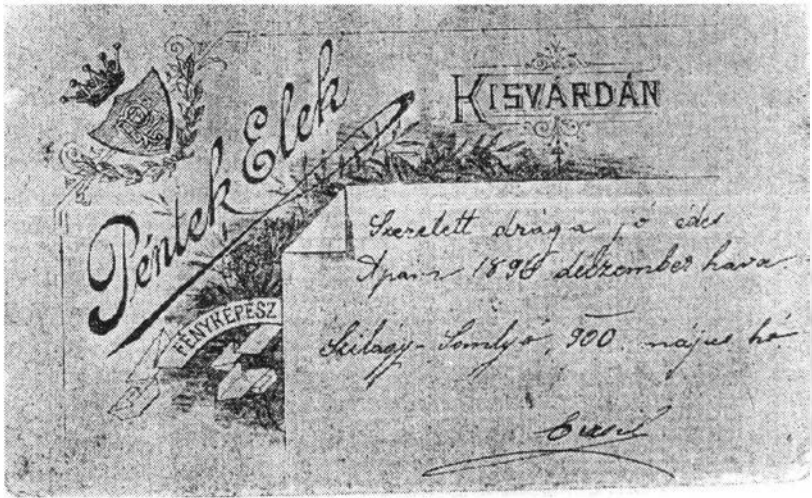 Péntek Elek
KISVÁRDÁN
FÉNYKÉPÉSZ
Szeretett drága jó édes
Apám 1898 deczember hava
Szilágy-Somlyó, 900. május hó